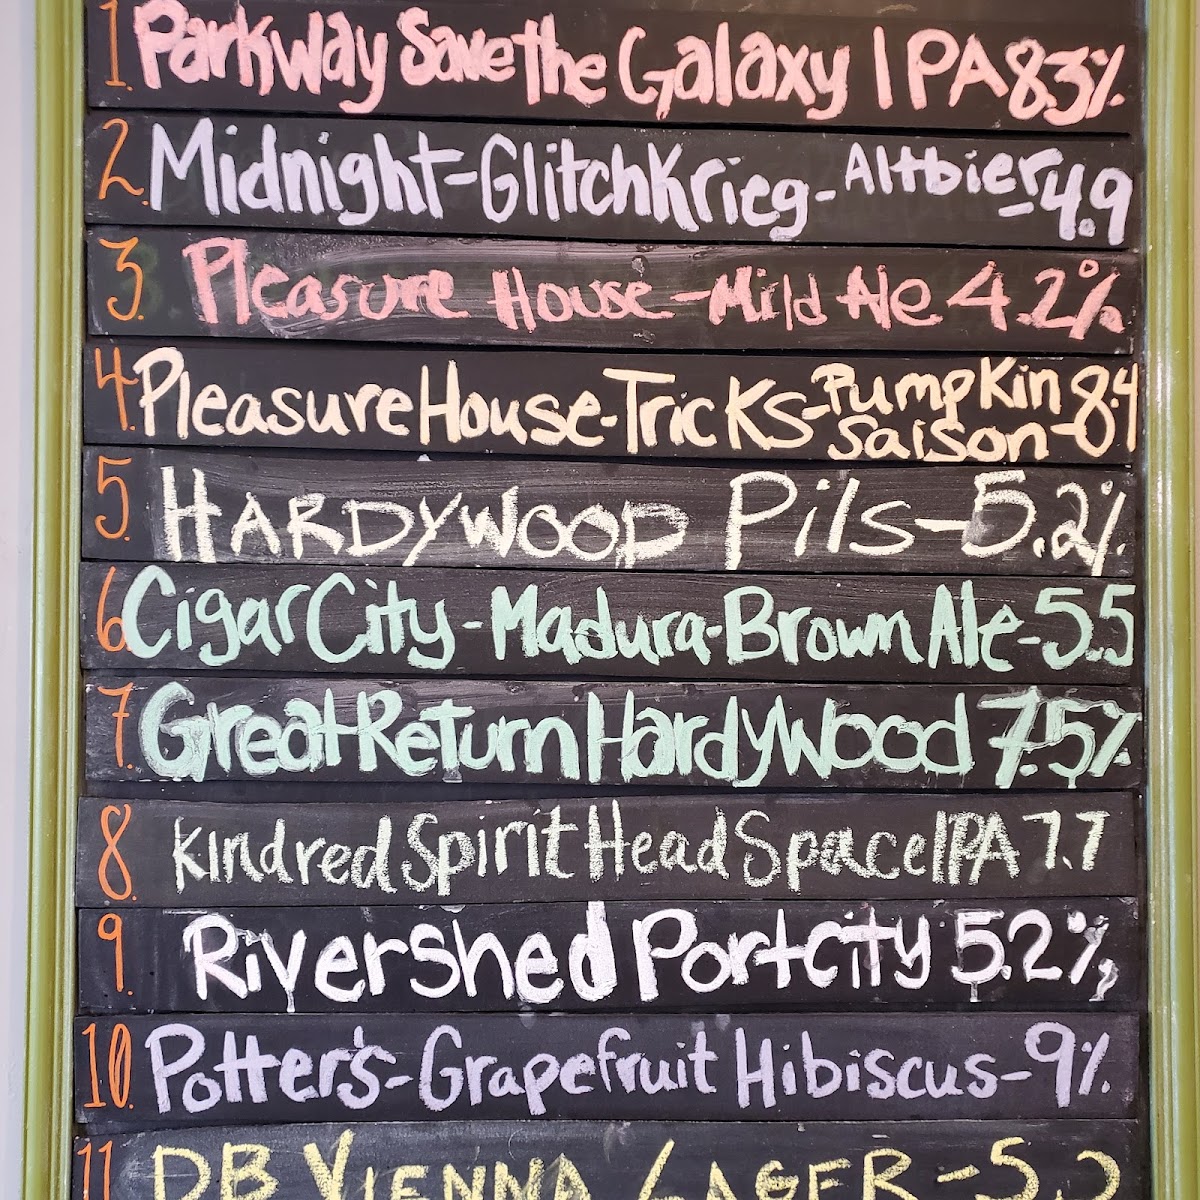 1. Parkway Save the Galaxy IPA 8.3%
2. Midnight-GlitchKrieg-Altbier-4.9
3. Pleasure House-Mild Ale 4.2%
4. Pleasure House-Tricks-Pumpkin Saison-8.4
5. HARDYWOOD Pils-5.2%
6. Cigar City-Madura-Brown Ale-5.5
7. Great Return Hardywood 7.5%
8. Kindred Spirit Head Space IPA 7.7
9. Rivershed Portcity 5.2%
10. Potter's-Grapefruit Hibiscus-9%
11 DB VIENNA LAGER-5.